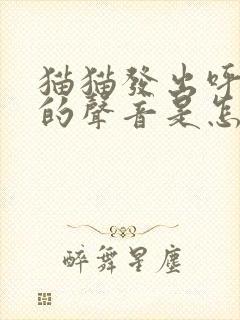 猫猫發出呼
的聲音是怎
醉舞星塵